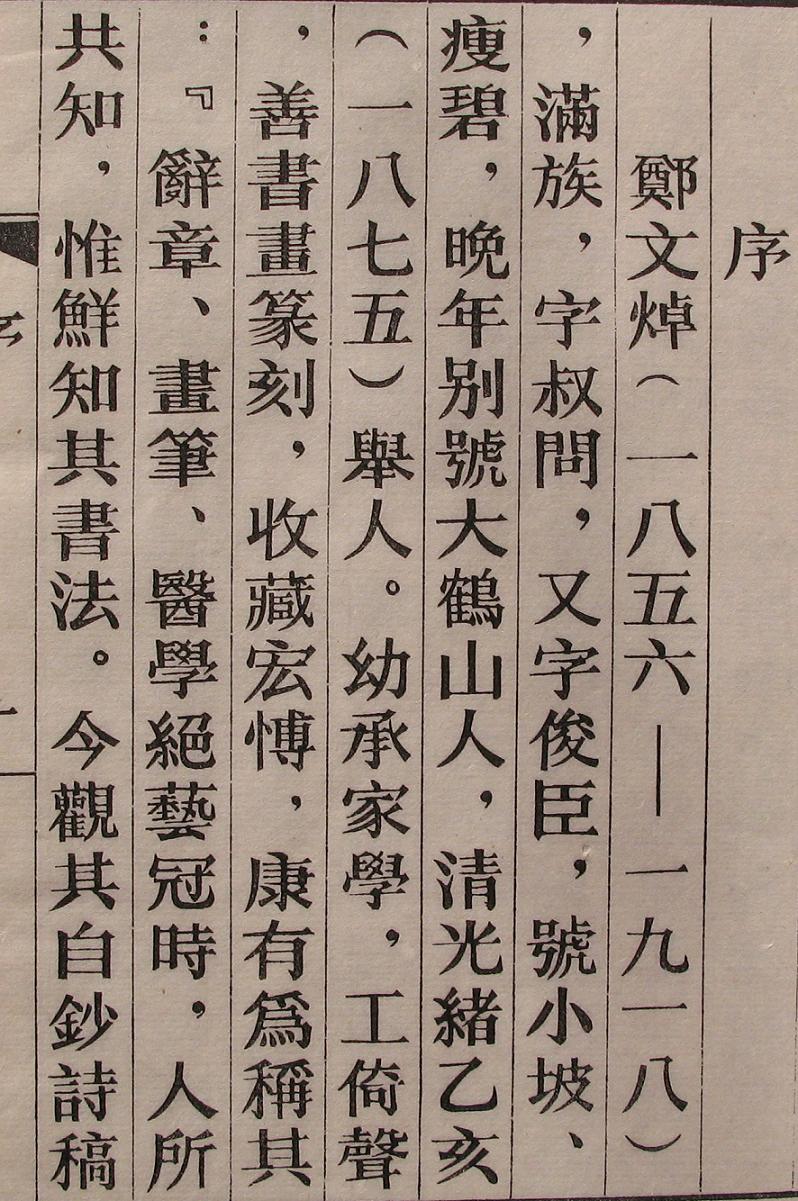 序
鄭文焯（一八五六—一九一八）
，滿族，字叔問，又字俊臣，號小坡、
瘦碧，晚年别號大鶴山人，清光緒乙亥
（一八七五）舉人。幼承家學，工倚聲
，善書畫篆刻，收藏宏愽，康有爲稱其
：『辭章、畫筆、醫學絕藝冠時，人所
共知，惟鮮知其書法。今觀其自鈔詩稿